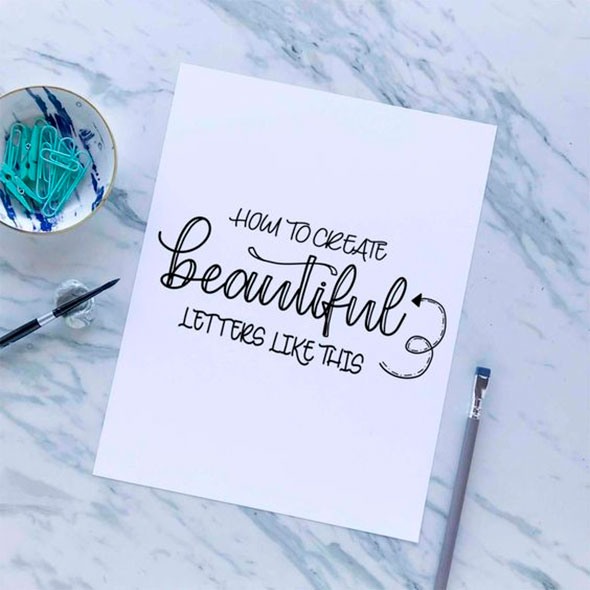 HOW TO CREATE
beautiful
LETTERS LIKE THIS